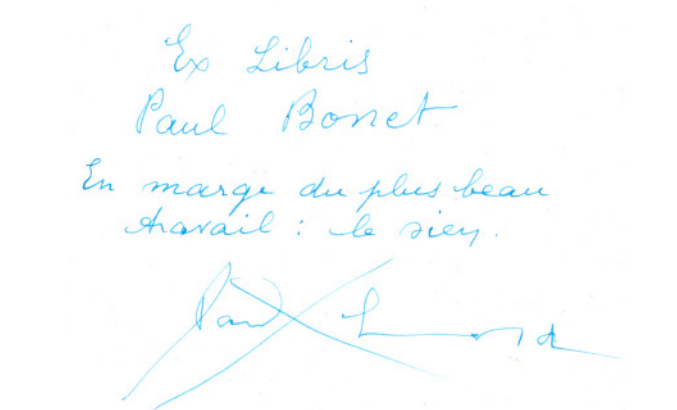 Ex Libris
Paul Bonet
En marge du plus beau
travail : le sien.
Paul